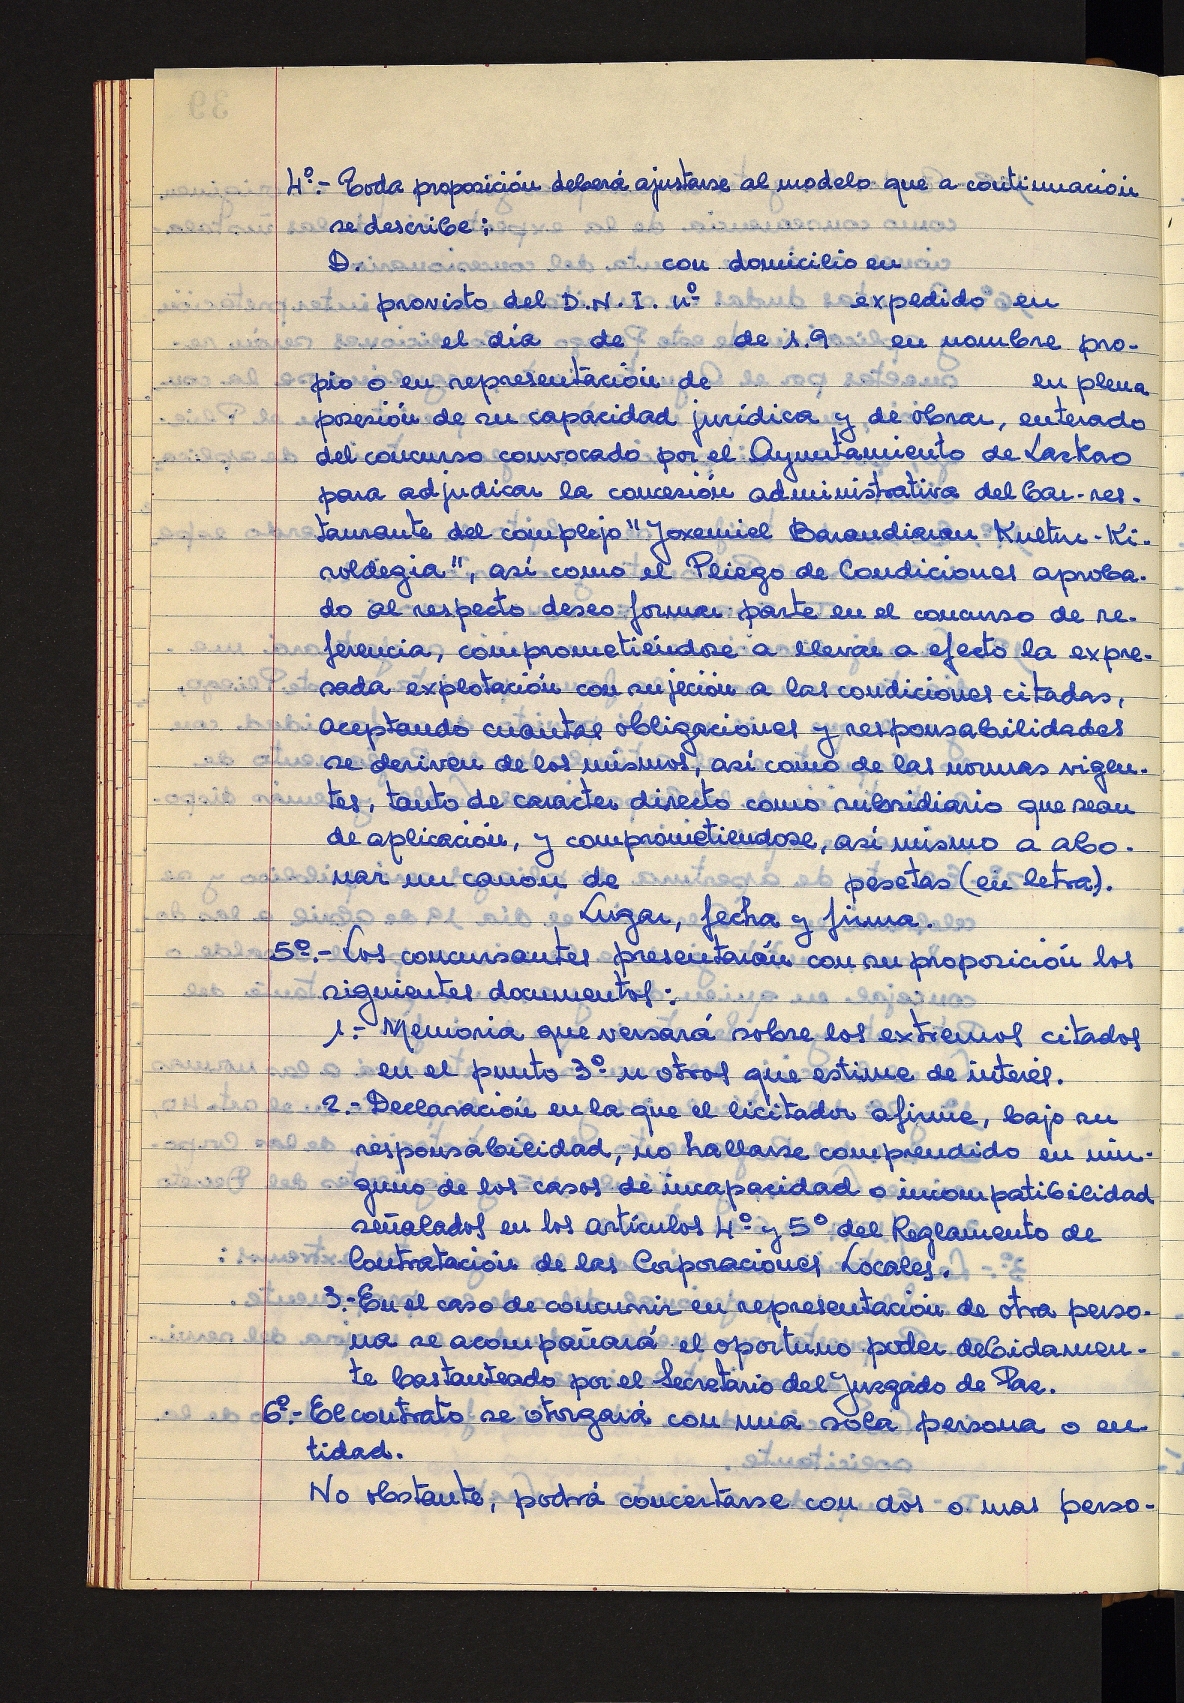 4º.- Toda proposición deberá ajustarse al modelo que a continuación
se describe:
D. con domicilio en
provisto del D.N.I. nº expedido en
el día de de 1.9 en nombre pro-
pio o en representación de en plena
posesión de su capacidad jurídica y de obrar, enterado
del concurso convocado por el Ayuntamiento de Lazkao
para adjudicar la concesión administrativa del bar-res-
taurante del complejo "Joxemiel Barandiaran Kultur-Ki-
roldegia", así como el Pliego de Condiciones aproba-
do al respecto deseo formar parte en el concurso de re-
ferencia, comprometiéndose a llevar a efecto la expre-
sada explotación con sujeción a las condiciones citadas,
aceptando cuantas obligaciones y responsabilidades
se deriven de los mismos, así como de las normas vigen-
tes, tanto de caracter directo como subsidiario que sean
de aplicación, y comprometiendose, así mismo a abo-
nar un canon de pesetas (en letra).
Lugar, fecha y firma.
5º.- Los concursantes presentarán con su proposición los
siguientes documentos:
1.- Memoria que versará sobre los extremos citados
en el punto 3º u otros que estime de interés.
2.- Declaración en la que el licitador afirme, bajo su
responsabilidad, no hallarse comprendido en nin-
guno de los casos de incapacidad o incompatibilidad
señalados en los artículos 4º y 5º del Reglamento de
Contratación de las Corporaciones Locales.
3.- En el caso de concurrir en representación de otra perso-
na se acompañará el oportuno poder debidamen-
te bastanteado por el Secretario del Juzgado de Paz.
6º.- El contrato se otorgará con una sola persona o en-
tidad.
No obstante, podrá concertarse con dos o mas perso-